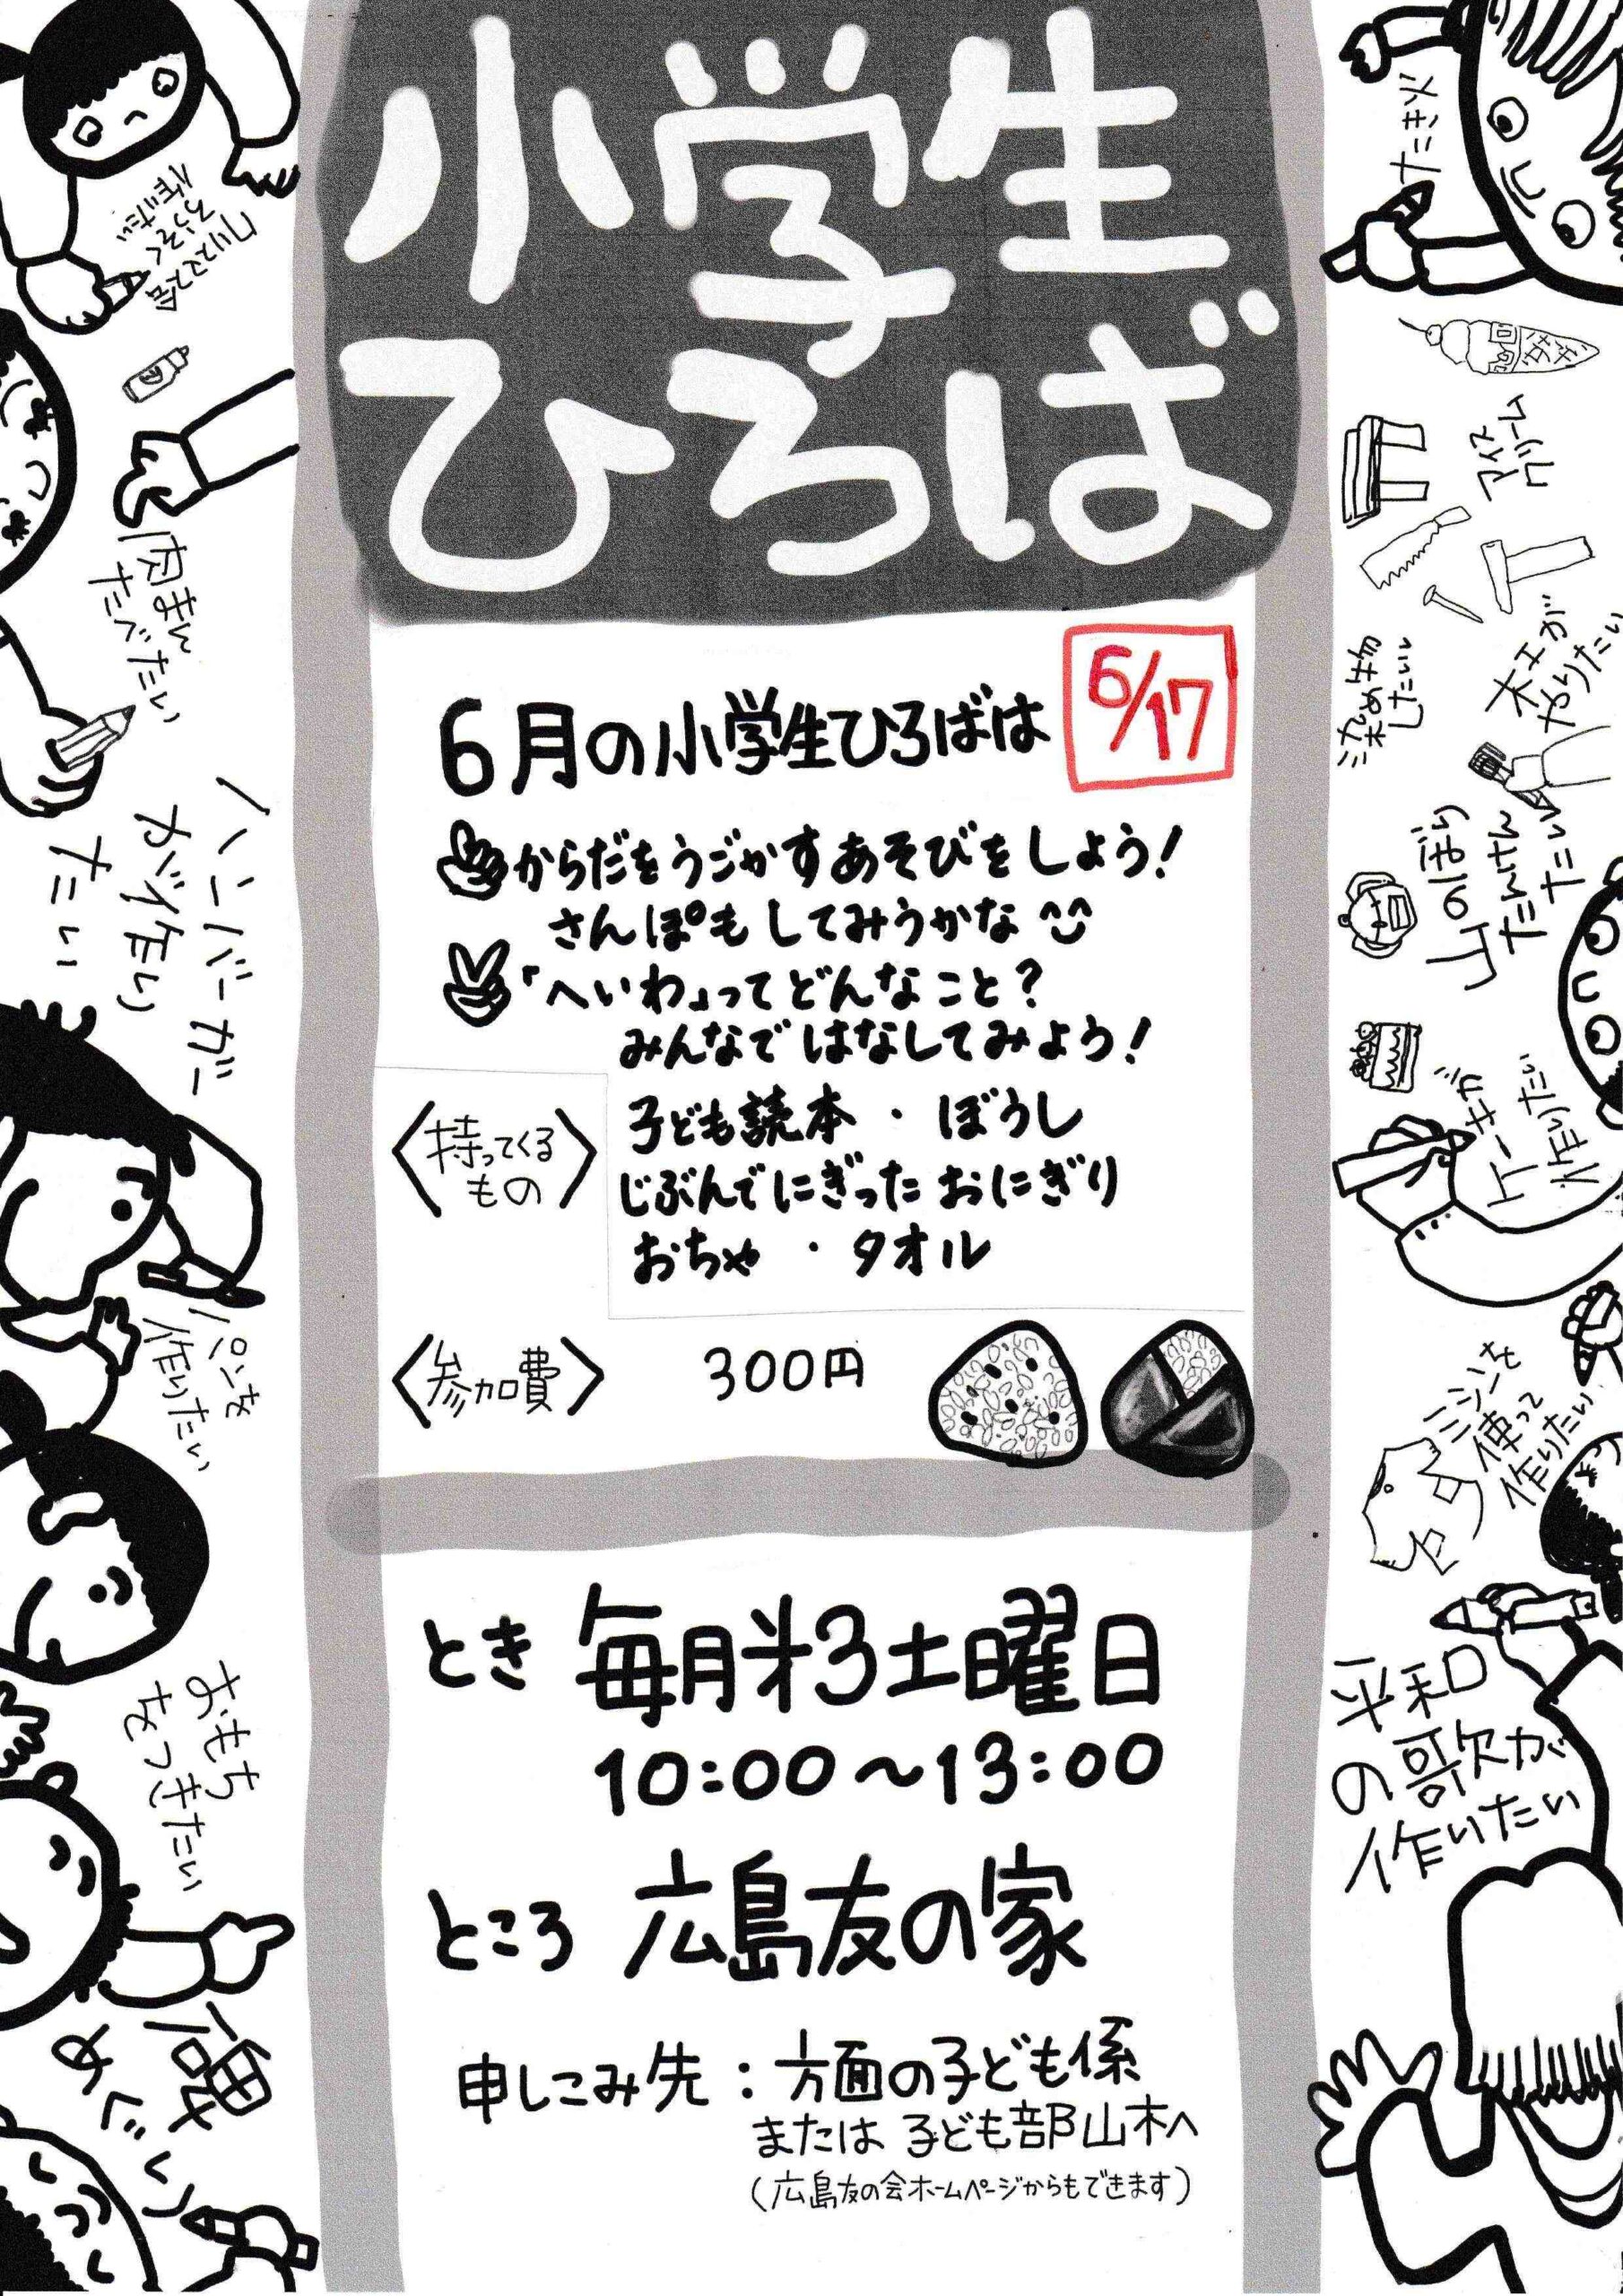 小学生
ひろば
6月の小学生ひろばは 6/17
からだをうごかすあそびをしよう!
さんぽもしてみうかな
「へいわ」ってどんなこと?
みんなではなしてみよう!
〈持ってくる
もの〉
子ども読本・ぼうし
じぶんでにぎったおにぎり
おちゃ・タオル
〈参加費〉 300円
とき 毎月㐧3土曜日
10:00〜13:00
ところ 広島友の家
申しこみ先:方面の子ども係
または 子ども部山本へ
(広島友の会ホームページからもできます)
クリスマス会
ろうそく
作りたい
肉まん
たべたい
ハンバーガー
が作り
たい
パンを
作りたい
おもち
をつきたい
碑
めぐり
たき火
アイス
クリーム
木工が
やりたい
染め物
したい
山のぼり
たんけん
したい
ケーキが
作りたい
ミシンを
使って
作りたい
平和
の歌が
作いたい